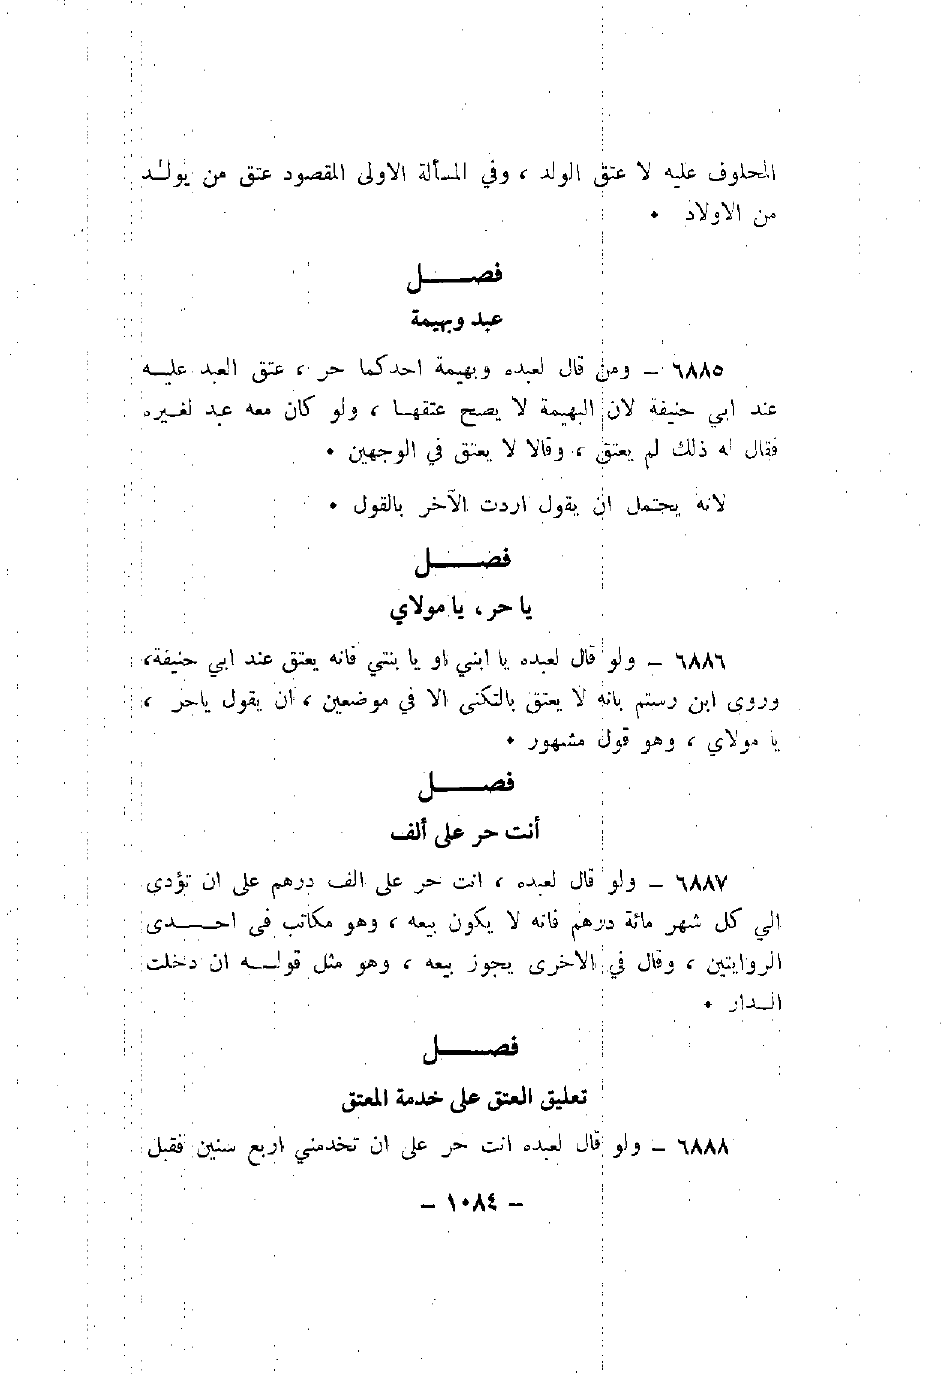 المحلوف عليه لا عتق الولد ، وفي المسألة الاولى المقصود عتق من يولد
من الاولاد ٠
فصل
عبد وبهيمة
٦٨٨٥ – ومن قال لعبده وبهيمة احدكما حر ، عتق العبد عليه
عند ابي حنيفة لان البهيمة لا يصح عتقها ، ولو كان معه عبد لغيره
فقال له ذلك لم يعتق ، وقالا لا يعتق في الوجهين ٠
لانه يحتمل ان يقول اردت الآخر بالقول ٠
فصل
يا حر ، يا مولاي
٦٨٨٦ – ولو قال لعبده يا ابني او يا بنتي فانه يعتق عند ابي حنيفة،
وروى ابن رستم بانه لا يعتق بالتكنى الا في موضعين ، ان يقول ياحر ،
يا مولاي ، وهو قول مشهور ٠
فصل
أنت حر على ألف
٦٨٨٧ – ولو قال لعبده ، انت حر على الف درهم على ان تؤدى
الي كل شهر مائة درهم فانه لا يكون بيعه ، وهو مكاتب فى احدى
الروايتين ، وقال في الاخرى يجوز بيعه ، وهو مثل قوله ان دخلت
الدار ٠
فصل
تعليق العتق على خدمة المعتق
٦٨٨٨ – ولو قال لعبده انت حر على ان تخدمني اربع سنين فقبل
– ١٠٨٤ –